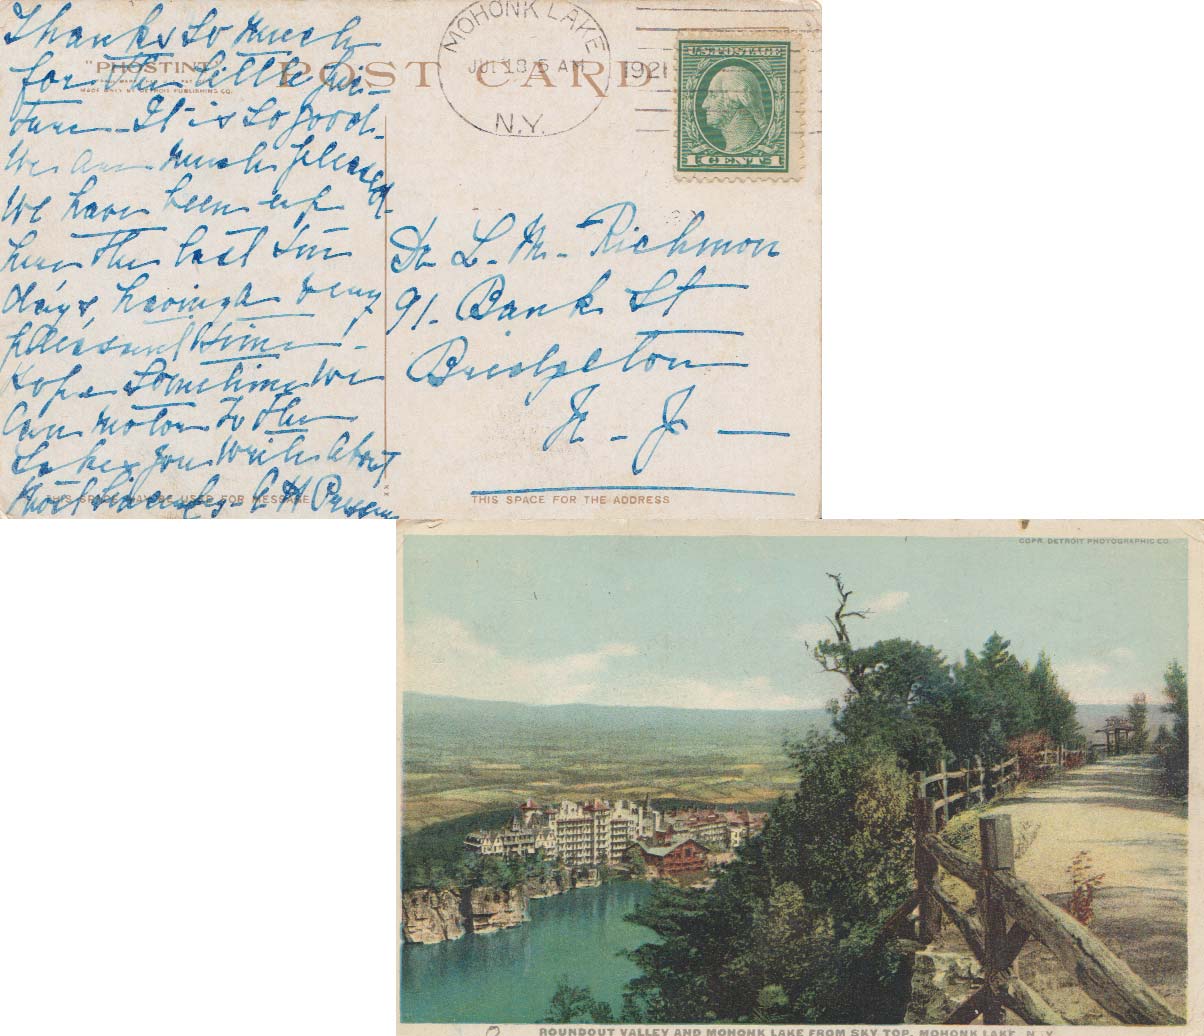 Thanks So Much
for the little pic-
ture - It is so good.
We are much pleased.
We have been up
here the last ten
days, having a very
pleasant time -
Hope Sometime we
Can motor to the
Lakes you write about
"PHOSTINT"
MADE ONLY BY DETROIT PUBLISHING CO.
POST CARD
MOHONK LAKE
JUL 18 5 AM 1921
N.Y.
U.S. POSTAGE
1 CENT 1
Dr L. M. Richmon
91. Bank St
Bridgeton
N. J.
THIS SPACE MAY BE USED FOR MESSAGE
THIS SPACE FOR THE ADDRESS
COPR. DETROIT PHOTOGRAPHIC CO.
ROUNDOUT VALLEY AND MOHONK LAKE FROM SKY TOP, MOHONK LAKE, N. Y.